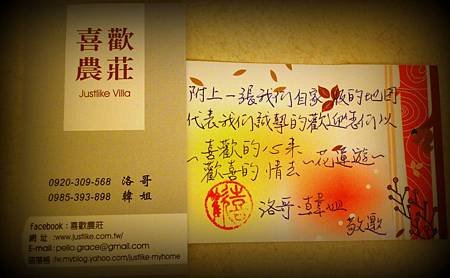 喜歡
農莊
Justlike Villa
0920-309-568 洛哥
0985-393-898 韓姐
Facebook：喜歡農莊
網 址 :www.justlike.com.tw/
E-mail : pelio.grace@gmail.com
部落格 :tw.myblog.yahoo.com/justlike-myhome
附上一張我们自家 版的地图
代表我们誠摯的歡迎您们以
~喜歡的心來
歡喜的情去~花蓮遊~
洛哥·韓姐
敬邀